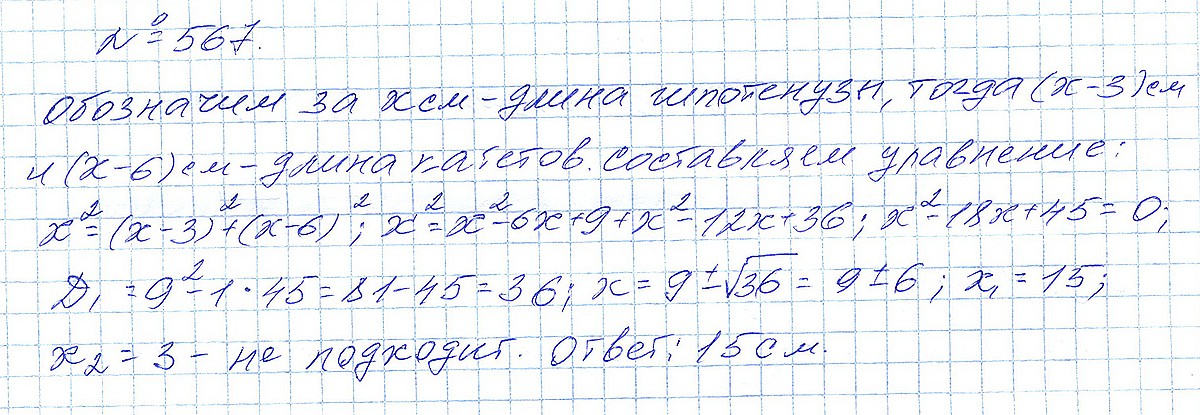 № 567.
Обозначим за x см - длина гипотенузы, тогда (x-3) см
и (x-6) см - длина катетов. составляем уравнение:
x² = (x-3)² + (x-6)²; x² = x² - 6x + 9 + x² - 12x + 36; x² - 18x + 45 = 0;
D₁ = 9² - 1 · 45 = 81 - 45 = 36; x = 9 ± √36 = 9 ± 6; x₁ = 15;
x₂ = 3 - не подходит. Ответ: 15 см.